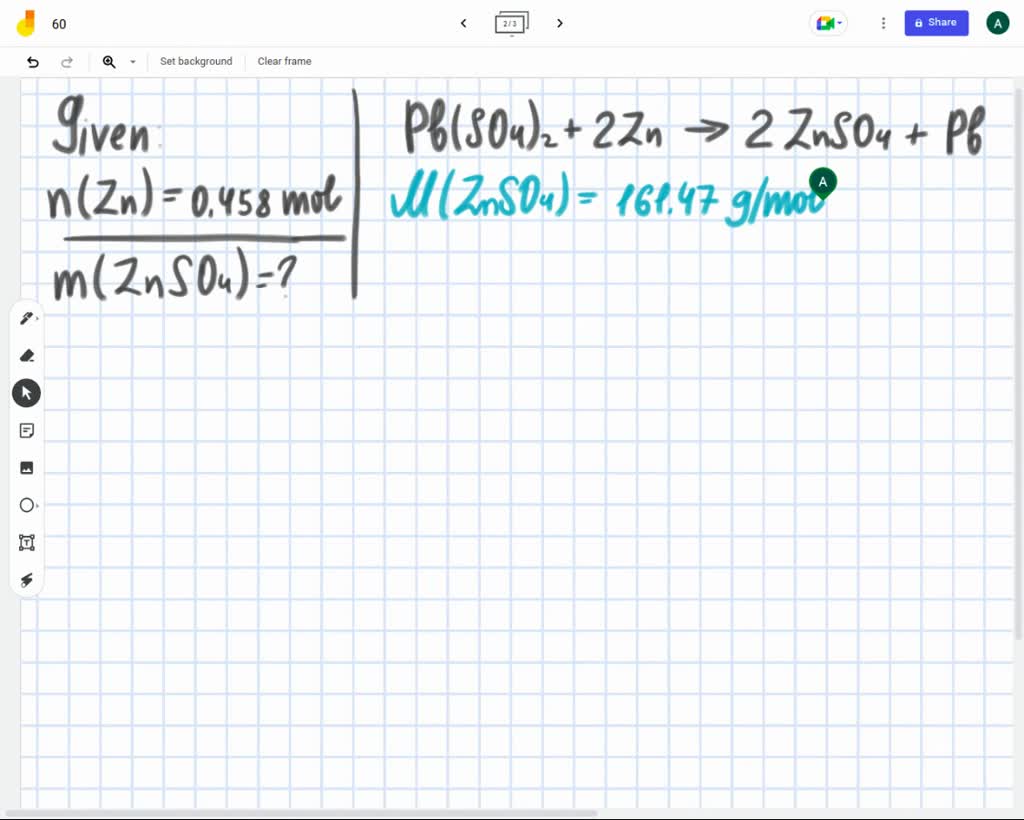 60
2/3
Share
A
Set background
Clear frame
Given:
n(Zn) = 0.458 mol
m(ZnSO₄) = ?
Pb(SO₄)₂ + 2Zn → 2 ZnSO₄ + Pb
M(ZnSO₄) = 161.47 g/mol
A
T